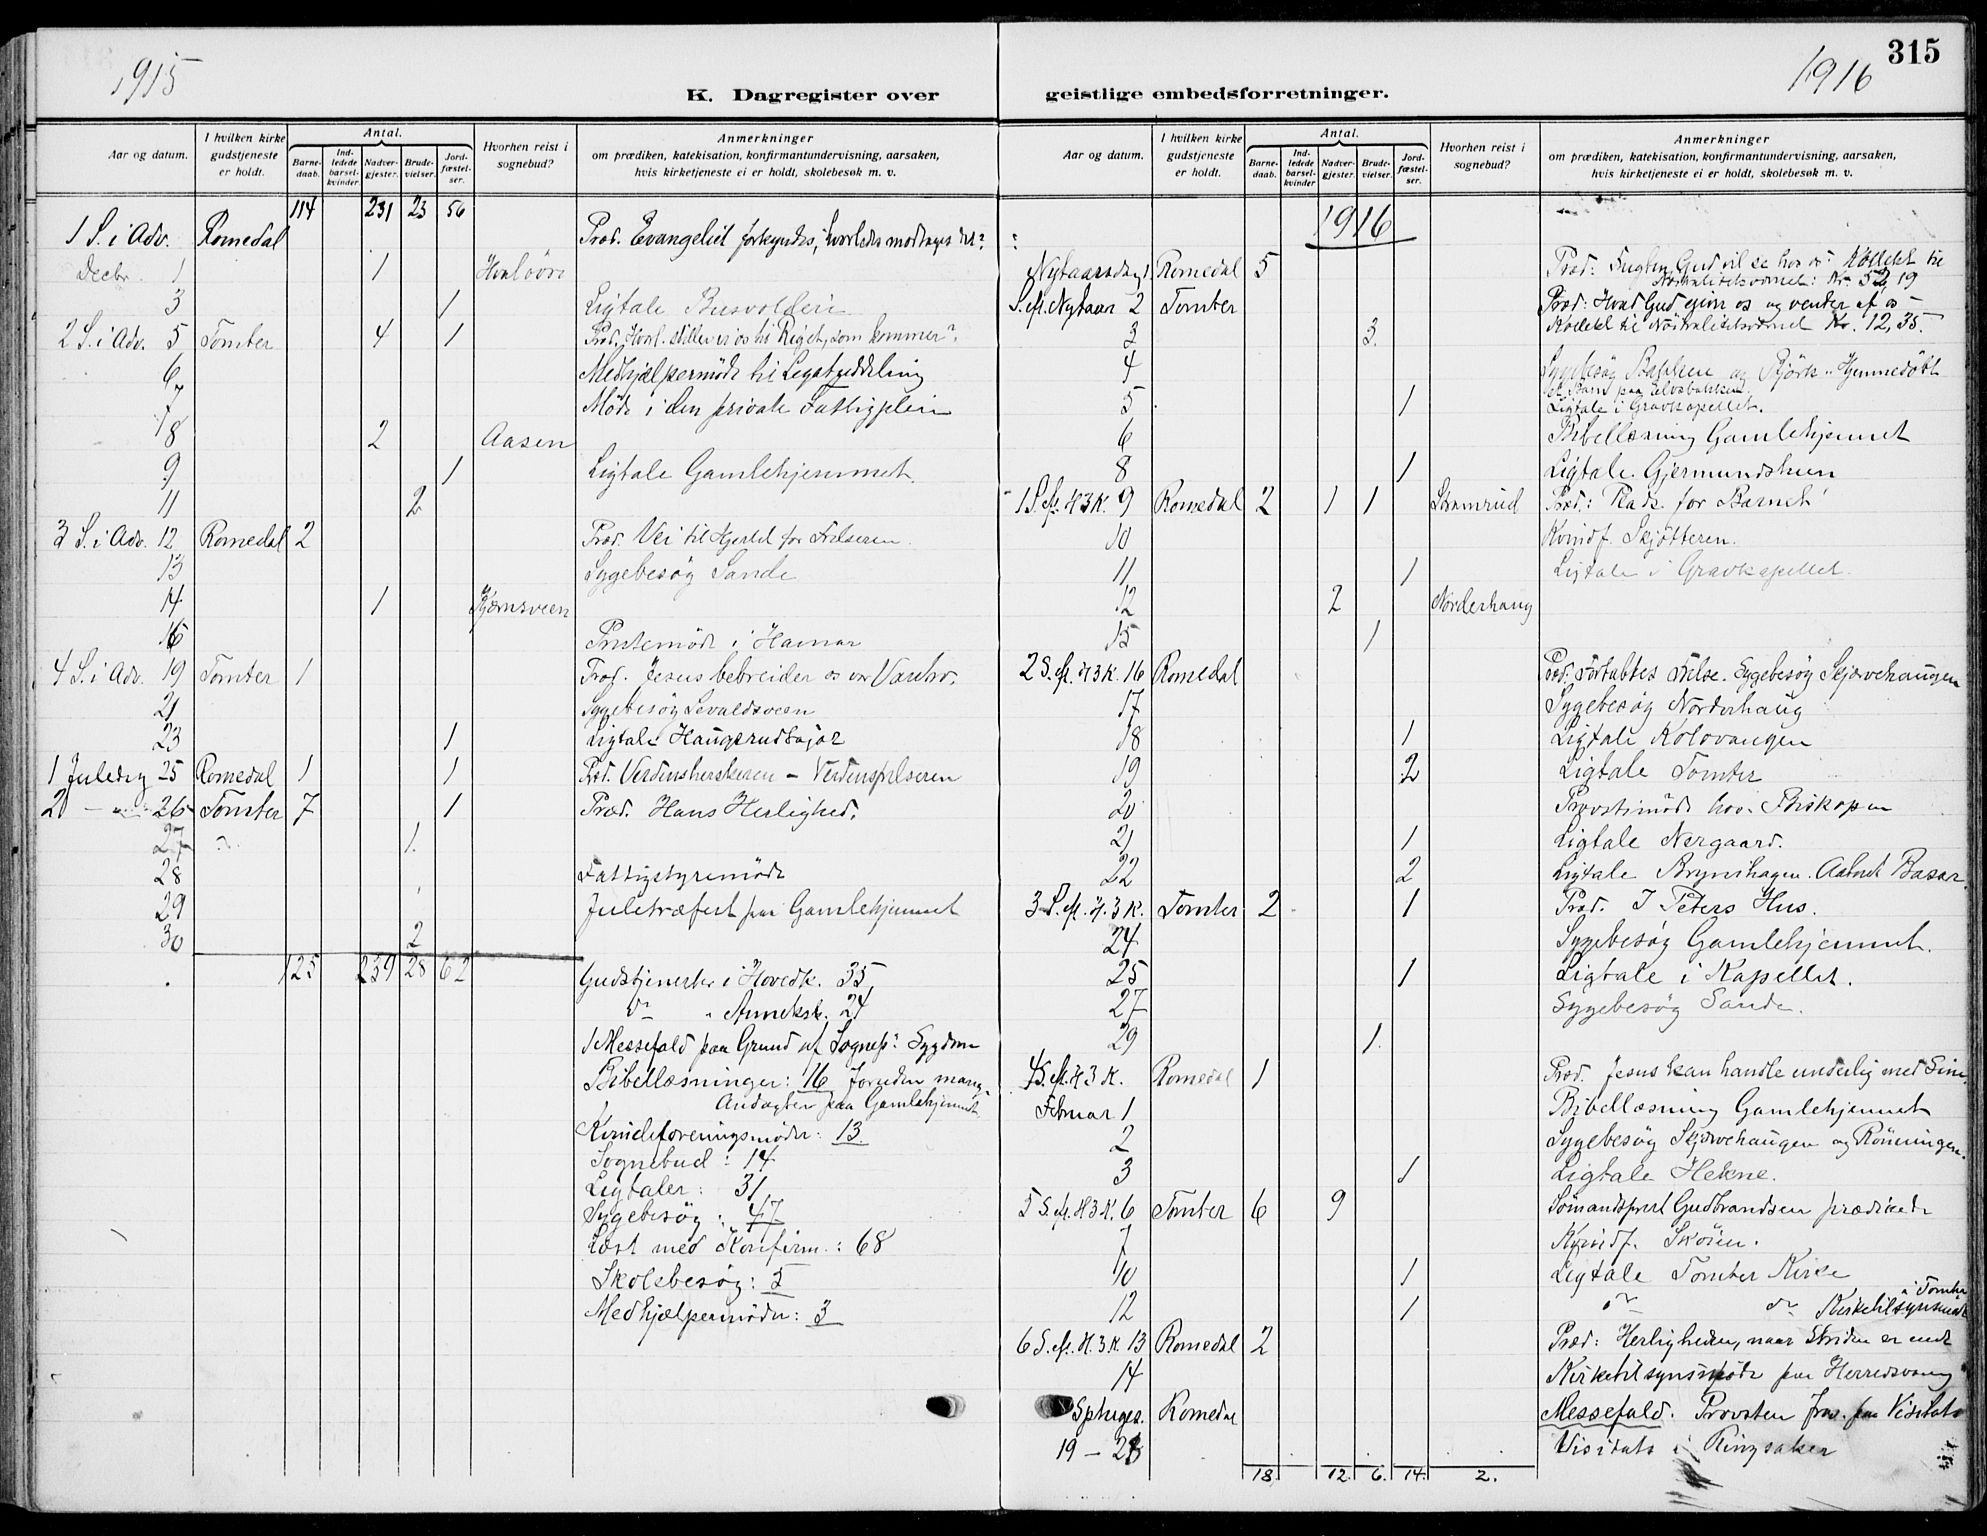 1915
K. Dagregister over
Aar og datum.
I hvilken kirke gudstjeneste er holdt.
Antal.
Barnedaab.
Indledede barselkvinder.
Nadvergjester.
Brudevielser.
Jordfæstelser.
Hvorhen reist i sognebud?
Anmerkninger
om prædiken, katekisation, konfirmantundervisning, aarsaken,
hvis kirketjeneste ei er holdt, skolebesøk m. v.
114 231 23 56
1 S. i Adv. Romedal Præd. Evangeliet forkyndes, hvorledes modtages det?
Decbr. 1 1
3 1 Ligtale
2 S. i Adv. 5 Tomter 4 1 Præd. Hvorl. stiller vi os til Riget, som kommer?
6 Medhjælpermöde til Legatuddeling
7 Möde i den private Fattigpleie
8 2 Aasen
9 1 Ligtale Gamlehjemmet.
11 2
3 S. i Adv. 12 Romedal 2 Præd. Vei til Hjertet for Frelseren.
13 Sygebesøg Sande
14 1 Kjernsveen
16 Prestemöde i Hamar
4 S. i Adv. 19 Tomter 1 Præd. Jesus bebreider os vor Vantro.
21 Sygebesøg Levaldsveen
23 1 Ligtale
1 Juledag 25 Romedal 1 1 Præd. Verdensherskeren – Verdensfrelseren
2 – " – 26 Tomter 7 1 Præd. Hans Herlighed.
27 1.
28 Fattigstyremöde
29 Juletræfest paa Gamlehjemmet
30 2
125 239 28 62 Gudstjenester i Hovedk. 35,
do " Anneksk. 24
1 Messefald paa Grund af Sognepr. Sygdom
Bibellæsninger: 16 foruden mange
Andagter paa Gamlehjemmet.
Kvindeforeningsmöder: 13.
Sognebud: 14
Ligtaler: 31
Sygebesøg: 47
Læst med Konfirm.: 68
Skolebesøg: 5
Medhjælpermöder: 3
1916
315
geistlige embedsforretninger.
Aar og datum.
I hvilken kirke gudstjeneste er holdt.
Antal.
Barnedaab.
Indledede barselkvinder.
Nadvergjester.
Brudevielser.
Jordfæstelser.
Hvorhen reist i sognebud?
Anmerkninger
om prædiken, katekisation, konfirmantundervisning, aarsaken,
hvis kirketjeneste ei er holdt, skolebesøk m. v.
1916
Nytaarsdag 1. Romedal 5 Præd: Gud vil se hos os. Kollekt til
Nøitralitetsværnet: Kr. 19
S. efl. Nytaar 2 Tomter Præd: Hvad Gud giver os og venter af os –
Kollekt til Nøitralitetsværnet Kr. 12,35.
3 3.
4 Sygebesøg Bakken og Björk. Hjemmedöbt
et Barn paa
5 1 Ligtale i Gravkapellet.
6 Bibellæsning Gamlehjemmet
8 1 Ligtale Gjermundshuen
1 S. efl. H3K. 9 Romedal 2 1 1 Stramrud Præd.: Plads for Barnet!
10 Kvindf. Skjötteren.
11 1 Ligtale i Gravkapellet.
12 2 Norderhaug
15 1
2 S. efl. H3K. 16 Romedal Præd. Fortabtes Frelse. Sygebesøg Skjærvehaugen
17 Sygebesøg Norderhaug
18 1 Ligtale Kolovangen
19 2 Ligtale Tomter
20 Provstimöde hos Biskopen
21 1 Ligtale Nergaard.
22 2 Ligtale Brynihagen. Basar.
3 S. efl. H.3K. Tomter 2 1 Præd. I Peters Hus.
24 Sygebesøg Gamlehjemmet.
25 1 Ligtale i Kapellet.
27 Sygebesøg Sande.
29 1.
4 S. efl. H3K. Romedal 1 Præd. Jesus kan handle underlig med Sine.
Februar 1 Bibellæsning Gamlehjemmet
2 Sygebesøg Skjærvehaugen og Rönningen.
3 1 Ligtale Hekne.
5 S. efl. H3K. 6 Tomter 6 9 Sømandsprest Gudbrandsen prædikede
7 Kvindf. Sköien.
10 1 Ligtale Tomter Kirke
12 1 do do Kirketilsynsmöde i Tomter
6 S. efl. H.3K. 13 Romedal 2 Præd: Herligheden, naar Striden er endt
14 Kirketilsynsmöde paa Herredsvang
Sptuages. Romedal Messefald. Provsten frav. paa Visitats
19 – 28 Visitats i Ringsaker
18 12. 6. 14. 2.